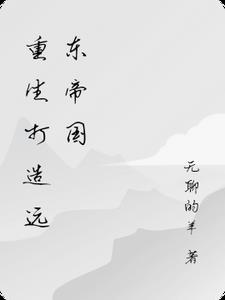 重生打造远
东帝国
无聊的羊 著